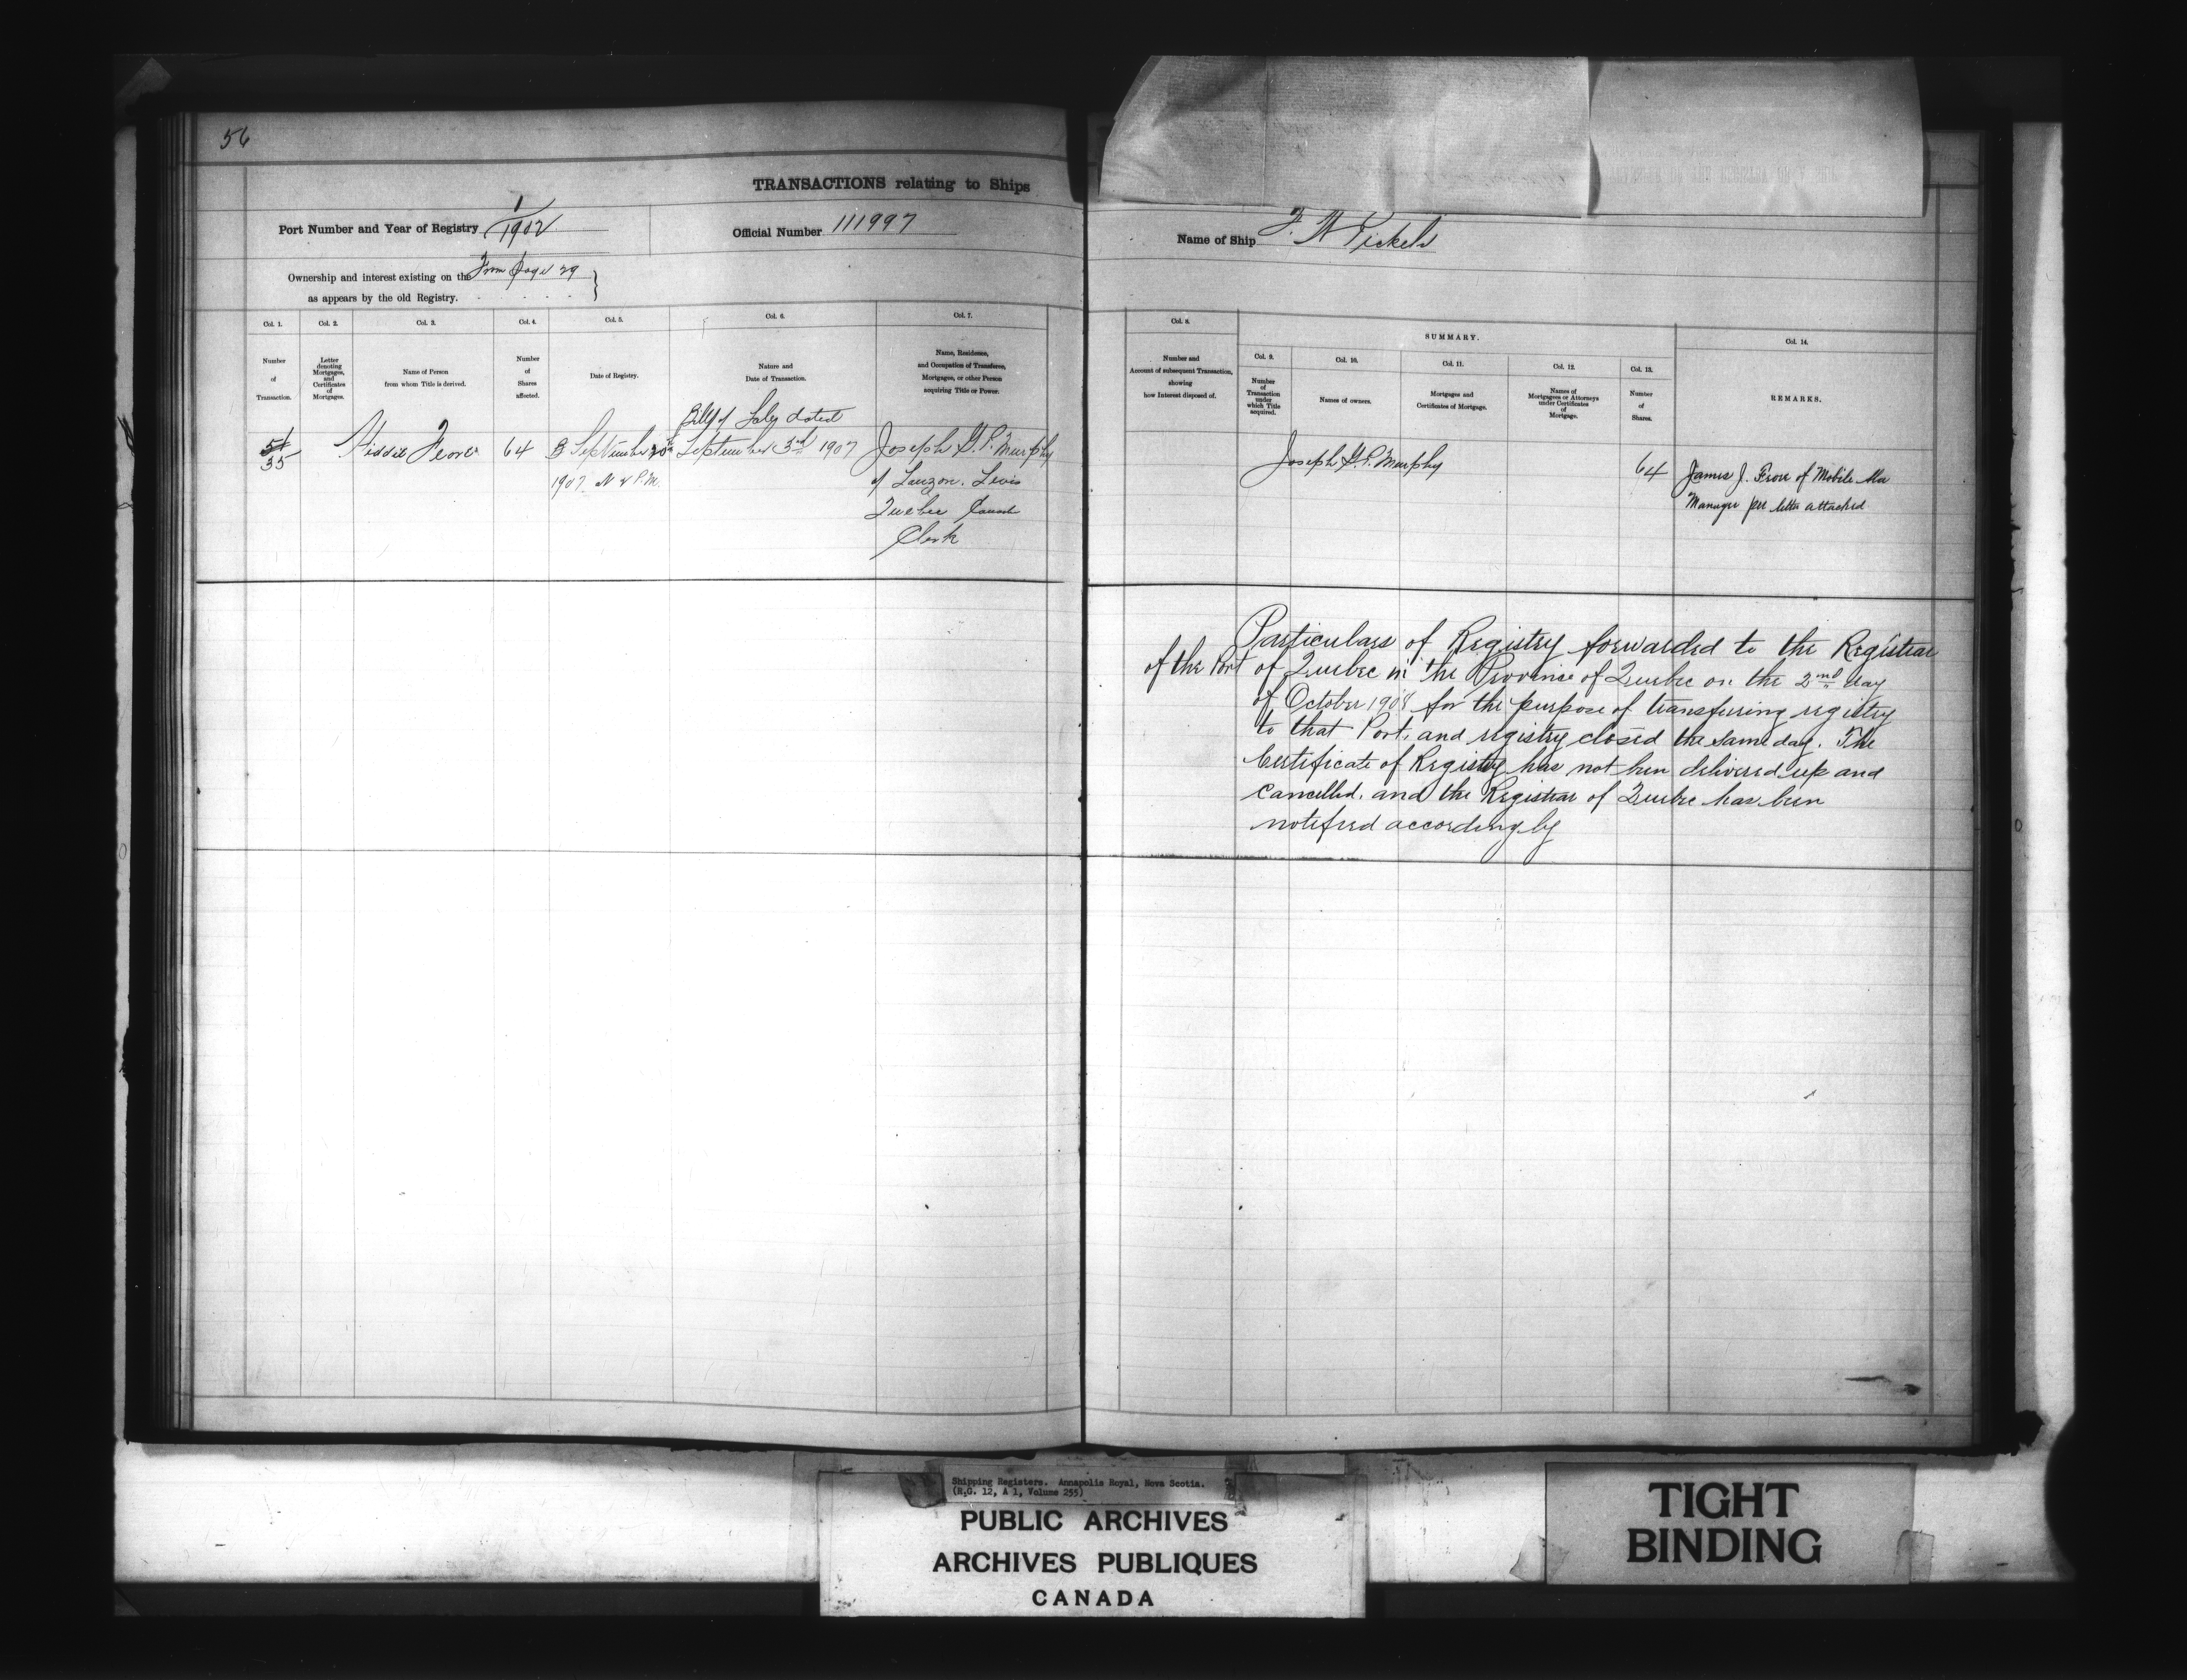 56
TRANSACTIONS relating to Ships
Port Number and Year of Registry 1/1902
Official Number 111997
Name of Ship F. W. Pickels
Ownership and interest existing on the From Page 29
as appears by the old Registry.
Col. 1.
Number
of
Transaction.
Col. 2.
Letter
denoting
Mortgages,
and
Certificates
of
Mortgages.
Col. 3.
Name of Person
from whom Title is derived.
Col. 4.
Number
of
Shares
affected.
Col. 5.
Date of Registry.
Col. 6.
Nature and
Date of Transaction.
Col. 7.
Name, Residence,
and Occupation of Transferee,
Mortgagee, or other Person
acquiring Title or Power.
Col. 8.
Number and
Account of subsequent Transaction,
showing
how Interest disposed of.
SUMMARY.
Col. 9.
Number
of
Transaction
under
which Title
acquired.
Col. 10.
Names of owners.
Col. 11.
Mortgages and
Certificates of Mortgage.
Col. 12.
Names of
Mortgagees or Attorneys
under Certificates
of
Mortgage.
Col. 13.
Number
of
Shares.
Col. 14.
REMARKS.
35
64
September 20th
1907 P.M.
Bill of Sale dated
September 3rd 1907
Joseph G. P. Murphy
of Lauzon. Levis
Quebec Canada
Clerk
Joseph G. P. Murphy
64
James J. of Mobile Ala
Manager per letter attached
Particulars of Registry forwarded to the Registrar
of the Port of Quebec in the Province of Quebec on the 2nd day
of October 1908 for the purpose of transferring registry
to that Port, and registry closed the same day. The
Certificate of Registry has not been delivered up and
cancelled, and the Registrar of Quebec has been
notified accordingly
Shipping Registers. Annapolis Royal, Nova Scotia.
(R.G. 12, A 1, Volume 255)
PUBLIC ARCHIVES
ARCHIVES PUBLIQUES
CANADA
TIGHT
BINDING